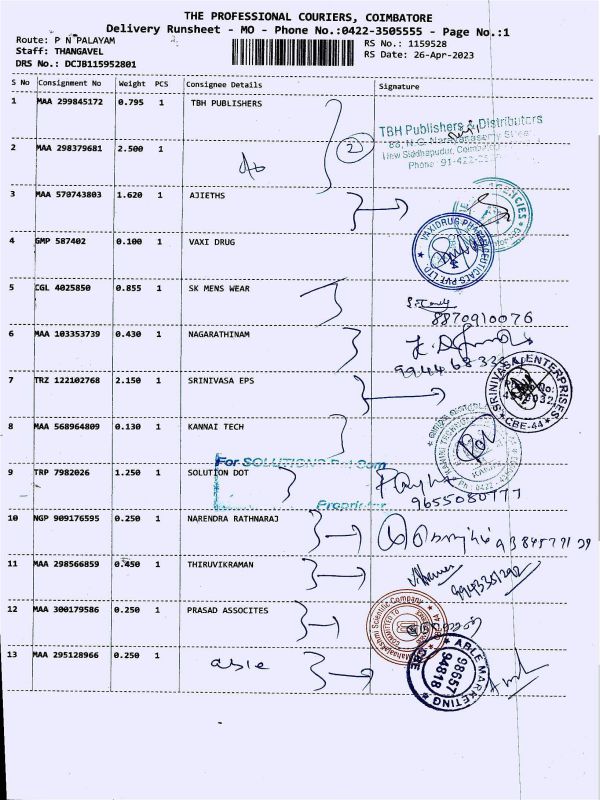 THE PROFESSIONAL COURIERS, COIMBATORE
Delivery Runsheet - MO - Phone No.:0422-3505555 - Page No.:1
Route: P N PALAYAM
Staff: THANGAVEL
DRS No.: DCJB115952801
RS No.: 1159528
RS Date: 26-Apr-2023
S No Consignment No Weight PCS Consignee Details Signature
1 MAA 299845172 0.795 1 TBH PUBLISHERS
TBH Publishers & Distributors
New Siddhapudur,
Phone 91-422-
2 MAA 298379681 2.500 1 do 2
3 MAA 570743803 1.620 1 AJIETHS
4 GMP 587402 0.100 1 VAXI DRUG
VAXIDRUG PHARMACEUTICALS PVT LTD
5 CGL 4025850 0.855 1 SK MENS WEAR
8870910076
6 MAA 103353739 0.430 1 NAGARATHINAM
7 TRZ 122102768 2.150 1 SRINIVASA EPS
SRINIVASA ENTERPRISES
CBE-44
8 MAA 568964809 0.130 1 KANNAI TECH
For SOLUTIONS Dot Com
9 TRP 7982026 1.250 1 SOLUTION DOT
9655080777
Proprietor
10 NGP 909176595 0.250 1 NARENDRA RATHNARAJ
11 MAA 298566859 0.450 1 THIRUVIKRAMAN
12 MAA 300179586 0.250 1 PRASAD ASSOCITES
Mahalakshmi Scientific Company
13 MAA 295128966 0.250 1 able
ABLE MARKETING
98657
94818
CBE